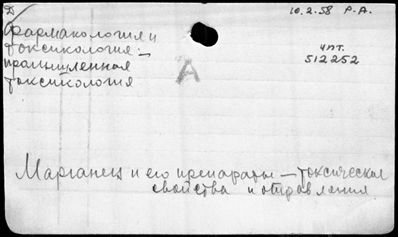 Д
10.2.58 Р.А.
Фармакология и
токсикология —
промышленная
токсикология
А
чит.
512252
Марганец и его препараты — токсические
свойства и отравления